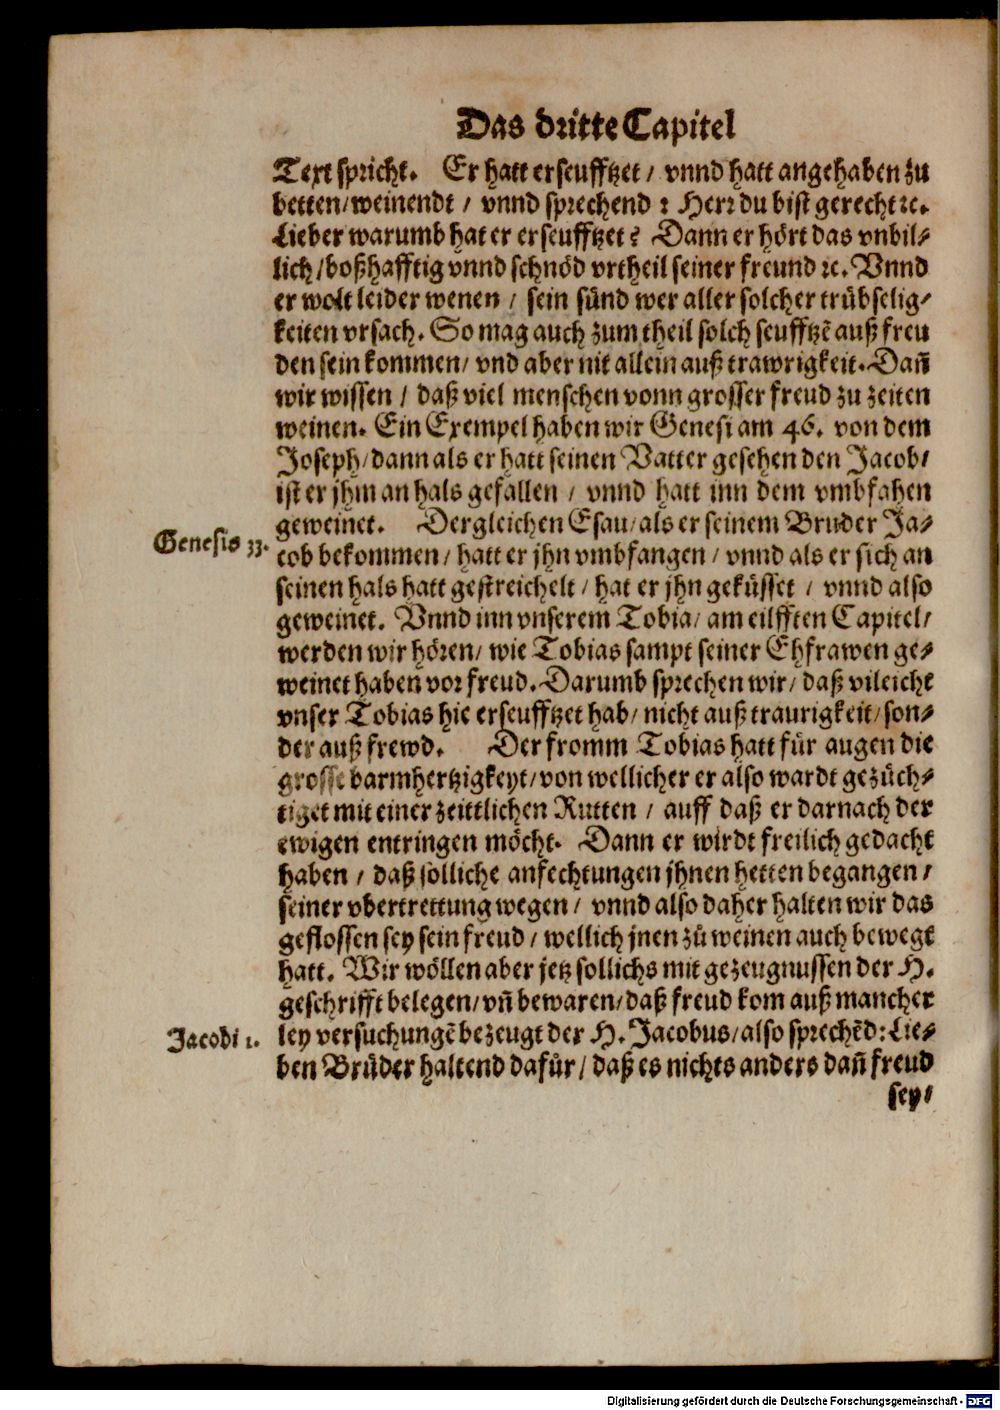 Das dritte Capitel
Text spricht. Er hatt erseufftzet / vnnd hatt angehaben zu
betten / weinendt / vnnd sprechend : Herr du bist gerecht ꝛc.
Lieber warumb hat er erseufftzet? Dann er hört das vnbil⸗
lich / boßhafftig vnnd schnöd vrtheil seiner freund ꝛc. Vnnd
er wolt leider wenen / sein sünd wer aller solcher trübselig⸗
keiten vrsach. So mag auch zum theil solch seufftzẽ auß freu
den sein kommen / vnd aber nit allein auß trawrigkeit. Dañ
wir wissen / daß viel menschen vonn grosser freud zu zeiten
weinen. Ein Exempel haben wir Genesi am 46. von dem
Joseph / dann als er hatt seinen Vatter gesehen den Jacob /
ist er jhm an hals gefallen / vnnd hatt inn dem vmbfahen
geweinet. Dergleichen Esau / als er seinem Bruder Ja⸗
Genesis 33.
cob bekommen / hatt er jhn vmbfangen / vnnd als er sich an
seinen hals hatt gestreichelt / hat er jhn geküsset / vnnd also
geweinet. Vnnd inn vnserem Tobia / am eilfften Capitel /
werden wir hören / wie Tobias sampt seiner Ehfrawen ge⸗
weinet haben vor freud. Darumb sprechen wir / daß vileicht
vnser Tobias hie erseufftzet hab / nicht auß traurigkeit / son⸗
der auß frewd. Der fromm Tobias hatt für augen die
grosse barmhertzigkeyt / von wellicher er also wardt gezüch⸗
tiget mit einer zeittlichen Rutten / auff daß er darnach der
ewigen entringen möcht. Dann er wirdt freilich gedacht
haben / daß solliche anfechtungen jhnen hetten begangen /
seiner vbertrettung wegen / vnnd also daher halten wir das
geflossen sey sein freud / wellich jnen zů weinen auch bewegt
hatt. Wir wöllen aber jetz sollichs mit gezeugnussen der H.
geschrifft belegen / vñ bewaren / daß freud kom auß mancher
Jacobi 1.
ley versuchungẽ bezeugt der H. Jacobus / also sprechẽd: Lie⸗
ben Brüder haltend dafür / daß es nichts anders dañ freud
sey /
Digitalisierung gefördert durch die Deutsche Forschungsgemeinschaft - DFG